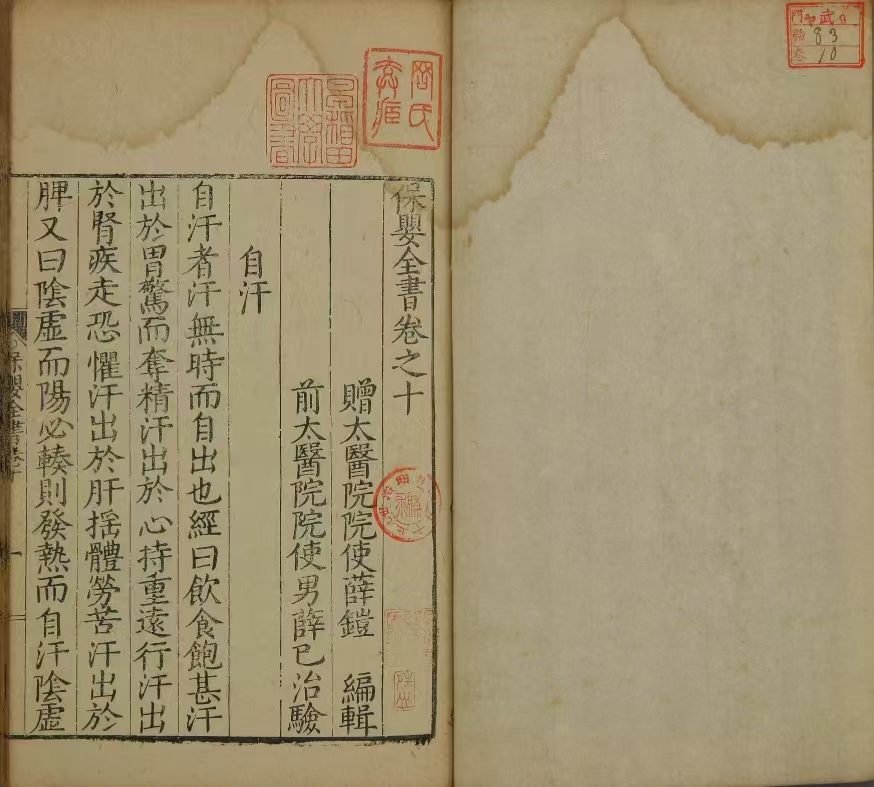 保嬰全書卷之十
贈太醫院院使薛鎧　編輯
前太醫院院使男薛已治驗
自汗
自汗者汗無時而自出也經曰飲食飽甚汗
出於胃驚而奪精汗出於心持重遠行汗出
於腎疾走恐懼汗出於肝揺體勞苦汗出於
脾又曰陰虛而陽必輳則發熱而自汗陰虛
保嬰全書卷十
一
早稲田大學圖書
武
門
83
10